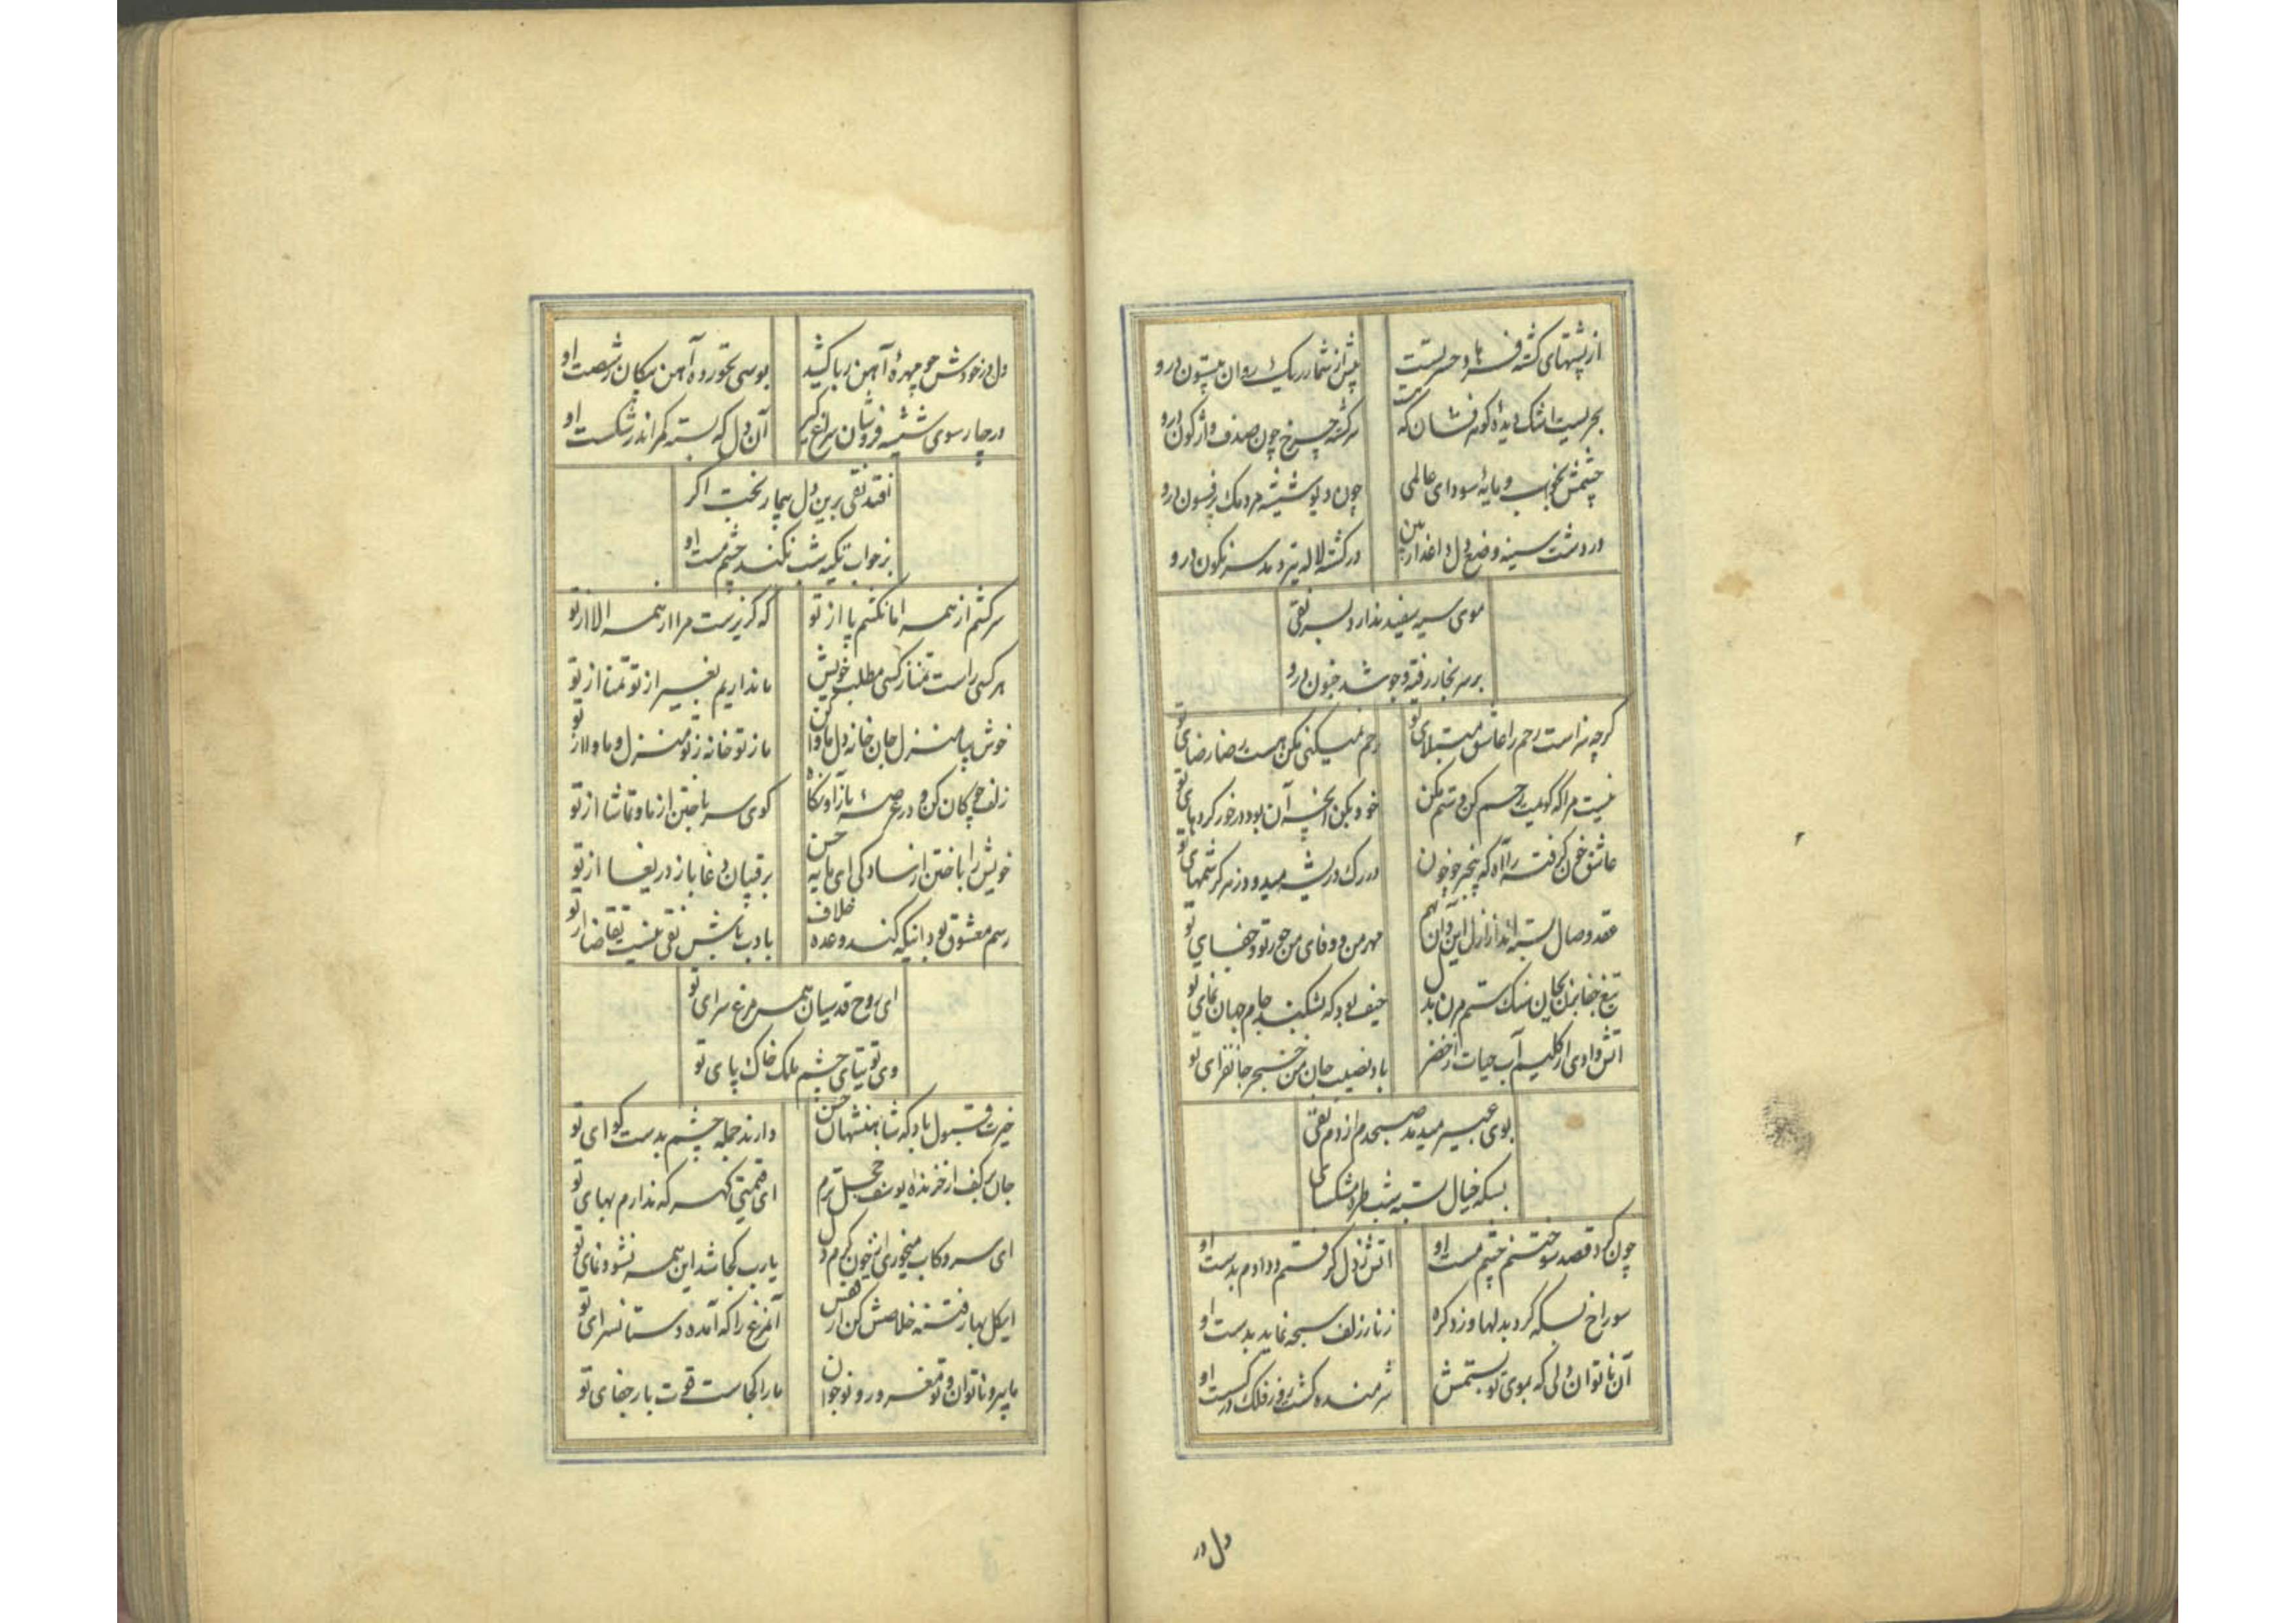 از پشتهای کشته فرهاد حسرتست بیش از شمار ریک روان بیستون درو
بحریست اشک دیده کوهر فشان که هست سرکشته چرخ چون صدف واژکون درو
چشمش بخواب و مایهٔ سودای عالمی چون دیو شیشه مردمک پرفسون درو
در دشت سینه وضع دل داغدار بین در کشته لاله تیره و سرنکون درو
موی سیه سفید ندارد بسر نقی
بر سر بخار رفته و جوشد جنون درو
کرچه سزاست رحم را عاشق مبتلای تو رحم نمیکنی مکن هست رضا رضای تو
نیست مرا که کویمت رحم کن و ستم مکن خود بکن آنچه آن بود در خور کردهای تو
عاشق خون کرفته را آه که بیخبر چو خون در رک و ریشه میدود زهر کرشمهای تو
عقد وصال بسته اند از ازل این و آن بهم مهر من و وفای من جور تو و جفای تو
تیغ جفا بزن بجان سنک ستم مزن بدل حیف بود که بشکند جام جهان نمای تو
آتش وادی از کلیم آب حیات از خضر باد نصیب جان من خنجر جانفزای تو
بوی عبیر میدمد صبحدم از دم نقی
بسکه خیال بسته شب طره مشکسای تو
چون کرد قصد سوختنم چشم مست او آتش ز دل کرفتم و دادم بدست او
سوراخ بسکه کرد بدلها و زد کره زنار زلف سبحه نماید بدست او
آن ناتوان دلی که بموی تو بستمش شرمنده کشت روز فلک در شکست او
دل در
دل در خودش چو مهرهٔ آهن ربا کشید بوسی نخورده آهن پیکان ز شصت او
در چار سوی شیشه فروشان سراغ کیر آن دل که بسته کمر اندر شکست او
افتد نقی برین دل بیمار نخبت اکر
بر خواب تکیه شب نکند چشم مست او
سرکشم از همه اما نکشم پا از تو که کزیرست مرا از همه الا از تو
هر کسی راست تمنا ز کسی مطلب خویش ما نداریم بغیر از تو تمنا از تو
خوش بیا منزل جان خانه دل ماوا کن ما ز تو خانه ز تو منزل و ماوا از تو
زلف چوکان کن و در عرصهٔ ناز آ و نکاه کوی سر باختن از ما و تماشا از تو
خویش را باختن از سادکی ای مایه حسن برقیبان دغا باز دریغا از تو
رسم معشوق بود اینکه کند وعده خلاف با ادب باش نقی نیست تقاضا از تو
ای روح قدسیان همه مرغ سرای تو
وی توتیای چشم ملک خاک پای تو
خیرت قبول باد که شاهنشهان حسن دارند جمله چشم بدست کدای تو
جان بر کف از خرنده یوسف خجل ترم ای قیمتی کهر که ندارم بهای تو
ای سرو کاب میخوری از خون کرم دل یارب کجا شد این همه نشو و نمای تو
ای کل بهار فتنه خلاصش کن از قفس آن مرغ را که آمده دستانسرای تو
ما پیر و ناتوان و تو مغرور و نوجوان ما را کجاست قوت بار جفای تو